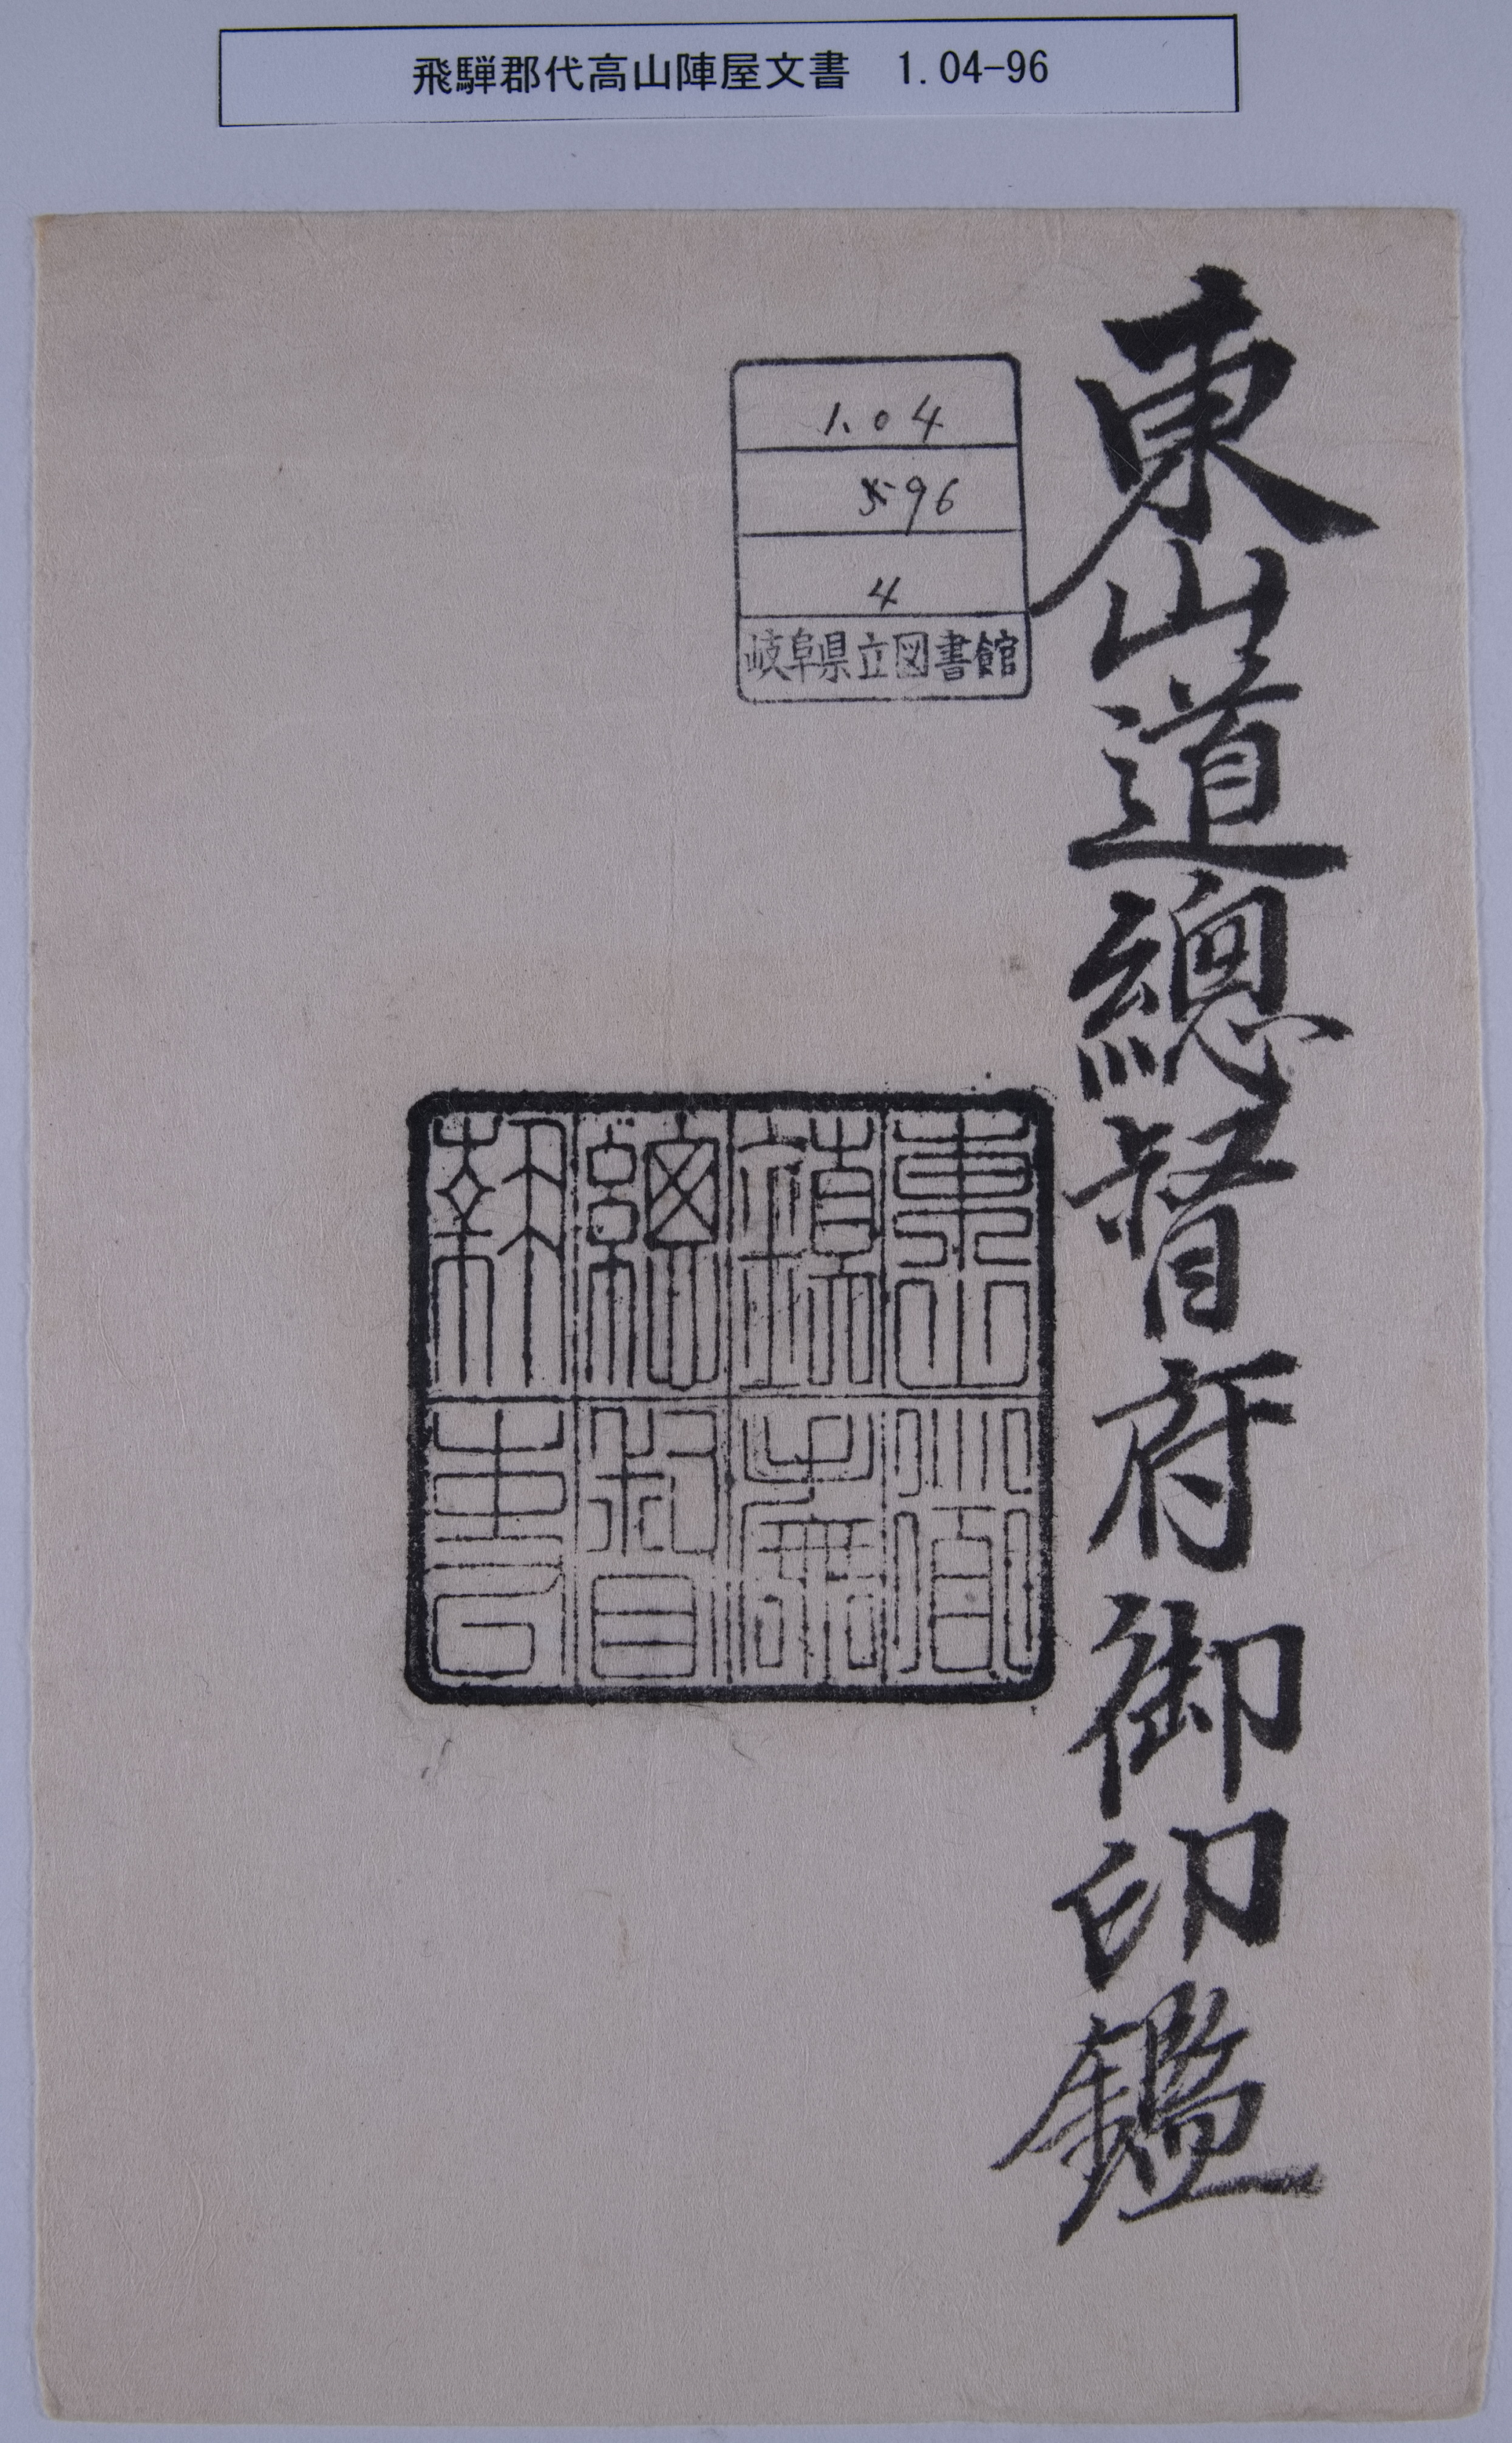 飛騨郡代高山陣屋文書　1.04-96
東山道總督府御印鑑
1.04
96
4
岐阜県立図書館
東山道
鎮撫
總督
執事